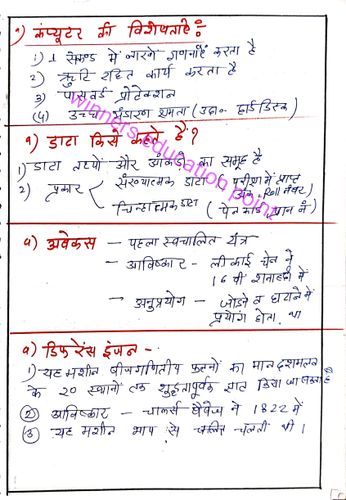 १) कंप्यूटर की विशेषताएं :
1) 1 सेकण्ड में लाखो गणनाएं करता है
2) त्रुटि रहित कार्य करता है
3) पासवर्ड प्रोटेक्शन
(4) उच्च भंडारण क्षमता (उदा० हार्ड डिस्क)
१) डाटा किसे कहते हैं?
1) डाटा तथ्यों और आंकड़ो का समूह है
2) प्रकार संख्यात्मक डाटा (परीक्षा में प्राप्त अंक, Roll नंबर)
चिन्हात्मक डाटा (पेन कार्ड नं)
winners education point
१) अवेकस - पहला स्वचालित यंत्र
- आविष्कार - लीकाई चेन ने
16 वी शताब्दी में
- अनुप्रयोग - जोड़ने व घटाने में
प्रयोग होता था
१) डिफरेंस इंजन -
1) यह मशीन बीजगणितीय फलनों का मान दशमलव
के 20 स्थानों तक शुद्धतापूर्वक ज्ञात किया जा सकता है
(2) आविष्कार - चार्ल्स बैवेज ने 1822 में
(3) यह मशीन भाप से चलती थी।